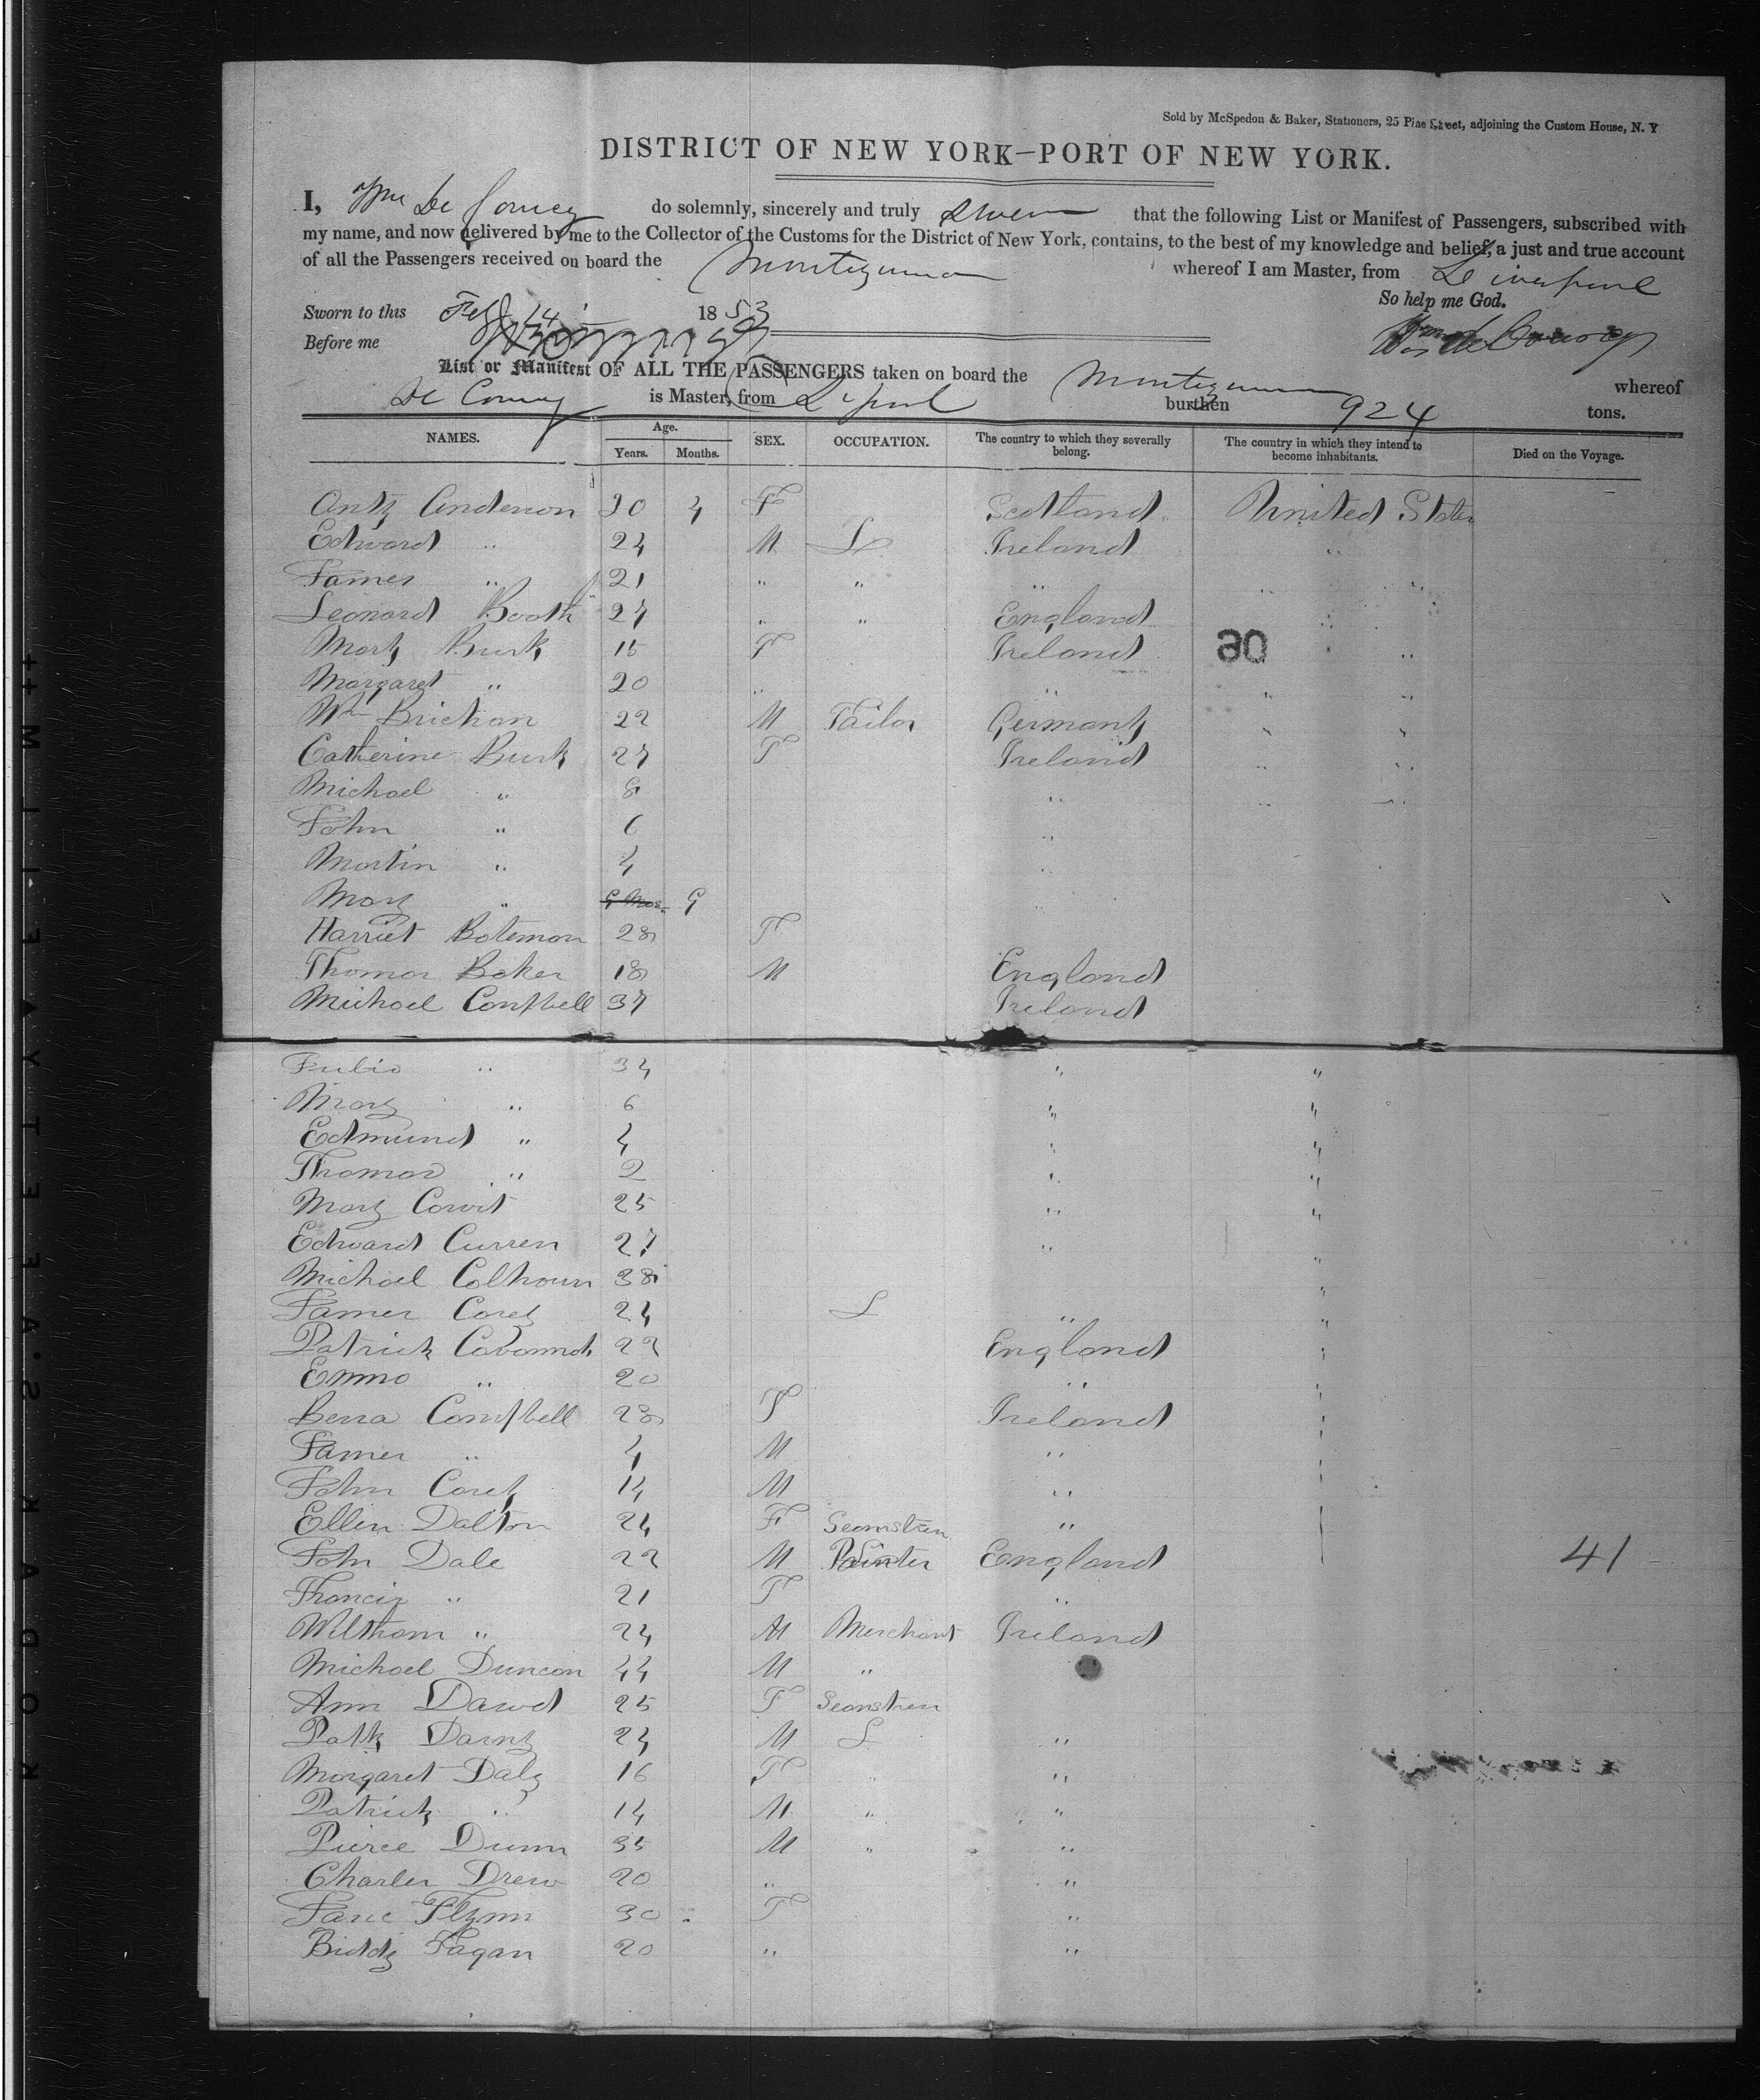 Sold by McSpedon & Baker, Stationers, 25 Pine Street, adjoining the Custom House, N. Y
DISTRICT OF NEW YORK—PORT OF NEW YORK.
I, Wm De Courcy do solemnly, sincerely and truly swear that the following List or Manifest of Passengers, subscribed with
my name, and now delivered by me to the Collector of the Customs for the District of New York, contains, to the best of my knowledge and belief, a just and true account
of all the Passengers received on board the Montezuma whereof I am Master, from Liverpool
So help me God.
Sworn to this Feb 14 1853
Before me
Wm De Courcy
List or Manifest OF ALL THE PASSENGERS taken on board the Montezuma whereof
De Courcy is Master, from L'pool burthen 924 tons.
NAMES. Age. Years. Months. SEX. OCCUPATION. The country to which they severally belong. The country in which they intend to become inhabitants. Died on the Voyage.
Anty Anderson 20 4 F Scotland United States
Edward " 24 M L Ireland "
James " 21 " " " " "
Leonard Booth 27 " " England " "
Mary Burk 15 F Ireland 60 " "
Margaret " 20 " " " "
Wm Brichan 22 M Tailor Germany " "
Catherine Burk 27 F Ireland " "
Michael " 8 " " "
John " 6 "
Martin " 4 "
Mary " 9 Mos. 9
Harriet Bateman 28 F
Thomas Baker 18 M England
Michael Campbell 37 Ireland
Julia " 34 " "
Mary " 6 " "
Edmund " 4 " "
Thomas " 2 " "
Mary Corvit 25 " "
Edward Curren 27 " "
Michael Colhoun 38 "
James Corey 24 L " "
Patrick Cavannah 22 England "
Emma " 20 " "
Berra Campbell 28 F Ireland "
James " 4 M " "
John Corey 14 M " "
Ellen Dalton 24 F Seamstress "
John Dale 22 M Painter England 41
Francis " 21 F "
Wiltham " 24 M Merchant Ireland
Michael Duncan 44 M "
Ann Dawd 25 F Seamstress
Patk Darny 24 M L "
Margaret Daly 16 F " "
Patrick " 14 M " "
Pierce Dunn 35 M " "
Charles Drew 20 " "
Jane Flynn 30 F "
Biddy Fagan 20 " "